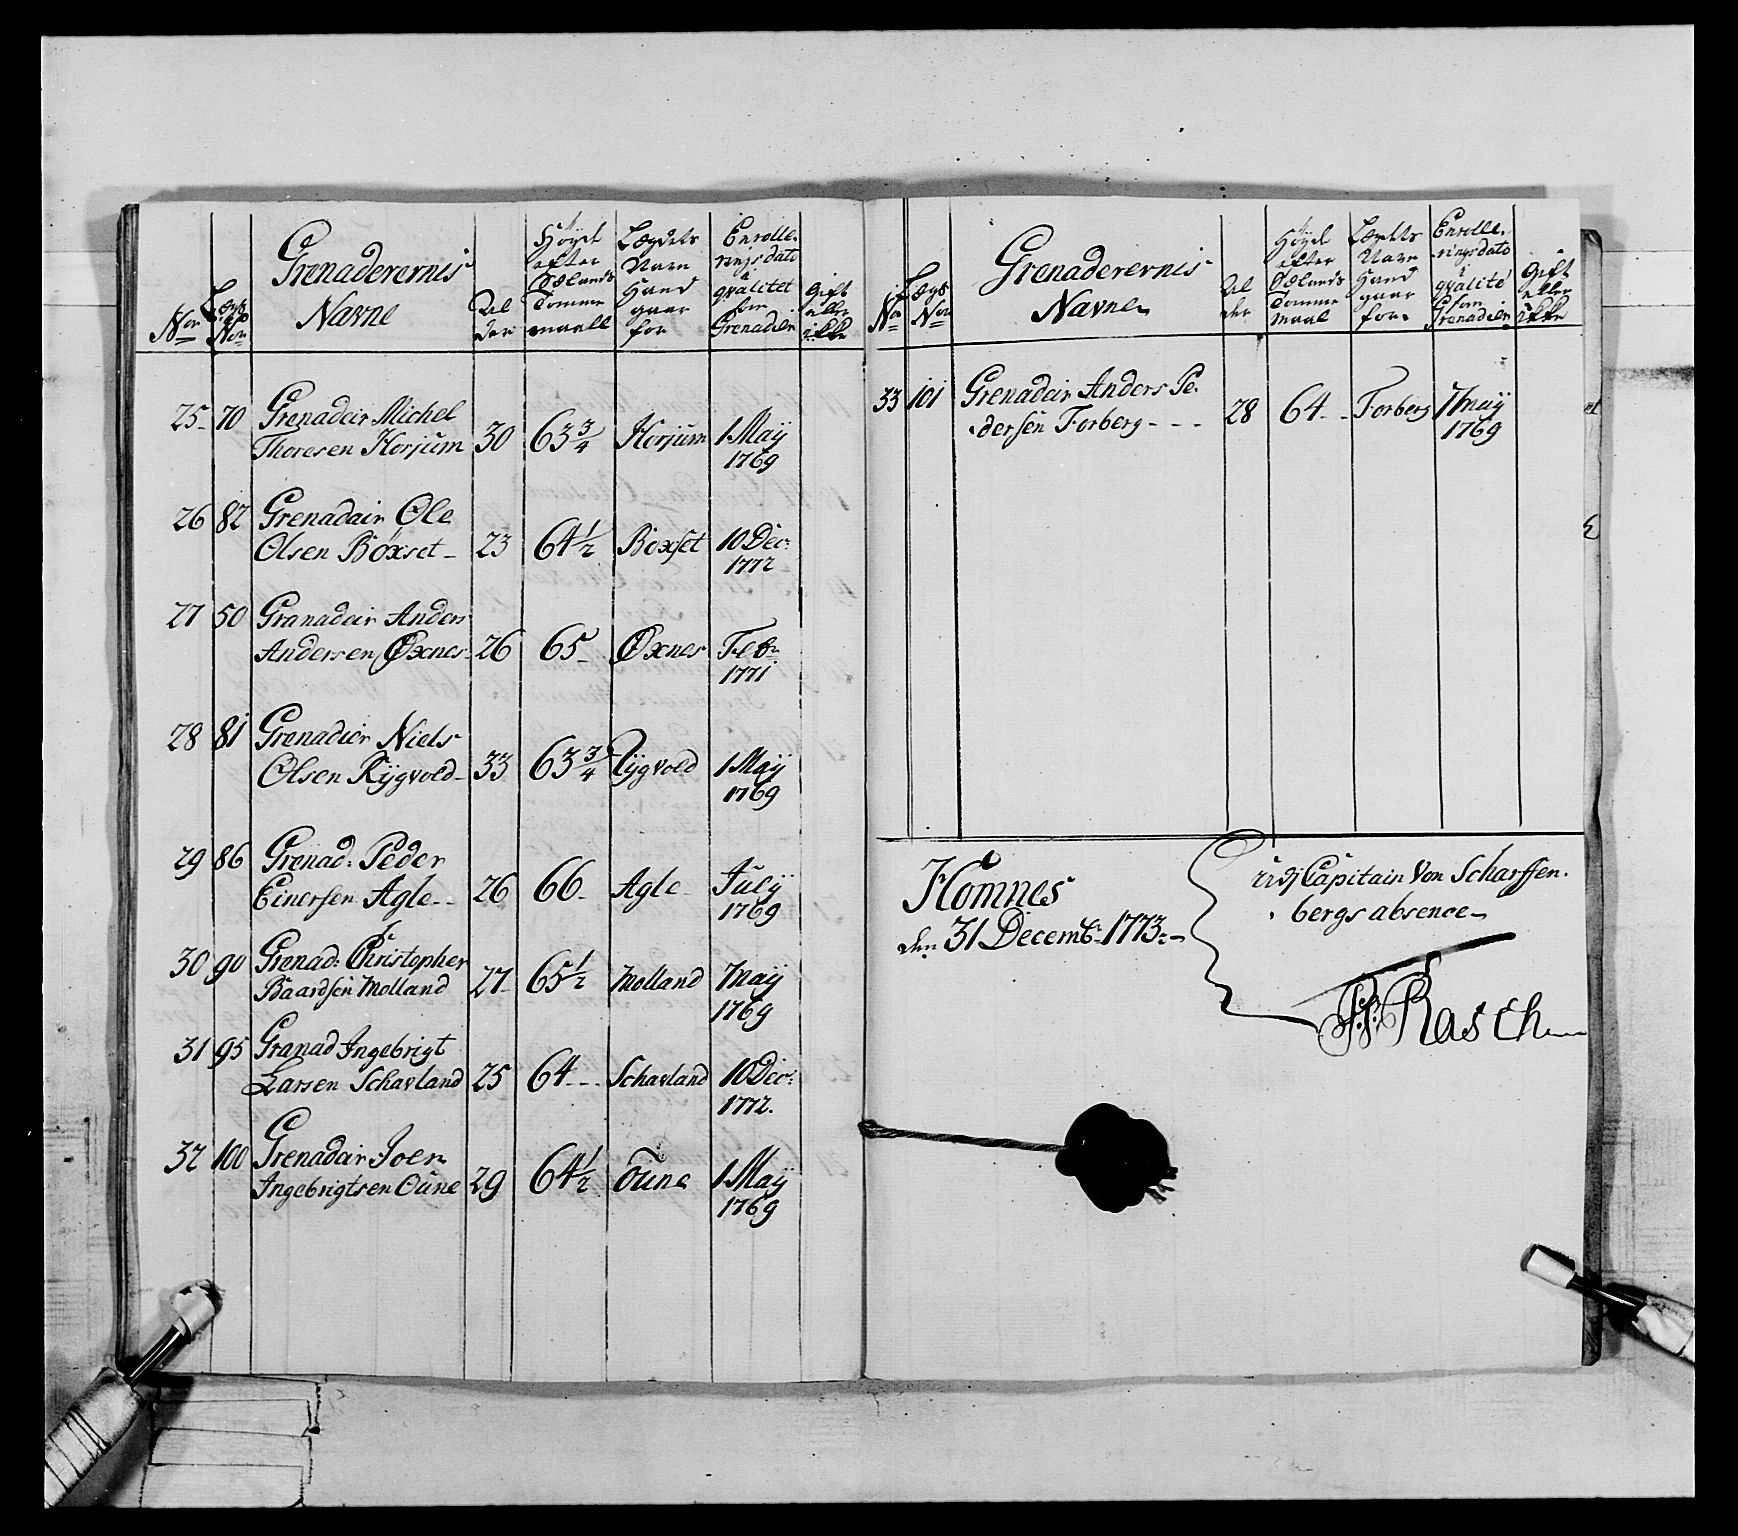 Nor
Lægs Nor
Grenaderernis
Navne
Al
der
Höyd
efter
Siælands
Tomme
maall
Lægdets
Navn
Hand
gaar
for
Enrolle.
rings dato
i
qvalitet
som
Grenadeir
Gift
eller
ikke
25 70 Grenadeir Michel
Thoresen Horjum 30 63 3/4 Horjum 1 Maÿ
1769
26 82 Grenadair Ole
Olsen Böxset 23 64 1/2 Böxset 10 Dec:
1772
27 50 Granadeir Anders
Andersen Øxnes 26 65 Øxnes Febr
1771
28 81 Grenadier Niels
Olsen Rÿgvold 33 63 3/4 Rÿgvold 1 Maÿ
1769
29 86 Grenad: Peder
Einersen Agle 26 66 Agle Julÿ
1769
30 90 Grenad: Christopher
Baardsen Molland 27 65 1/2 Molland 7 Maÿ
1769
31 95 Granad Ingebrigt
Larsen Schavland 25 64 Schavland 10 Dec:
1772.
32 100 Grenadeir Joen
Ingebrigtsen Oune 29 64 1/2 Oune 1 Maÿ
1769
Nor
Lægs
Nor
Grenaderernis
Navne
Al
der
Höyd
efter
Siælands
Tomme
maal
Lægdets
Navn
Hand
gaar
for
Enrolle.
rings dato
i
qvalité
som
Grenadeir
Gift
eller
ikke
33 101 Grenadeir Anders Pe-
dersen Forberg 28 64 Forberg 7 Maÿ
1769
Homnes
den 31 Decembr 1773
udj Capitain Von Scharffen.
bergs absence
Rasch